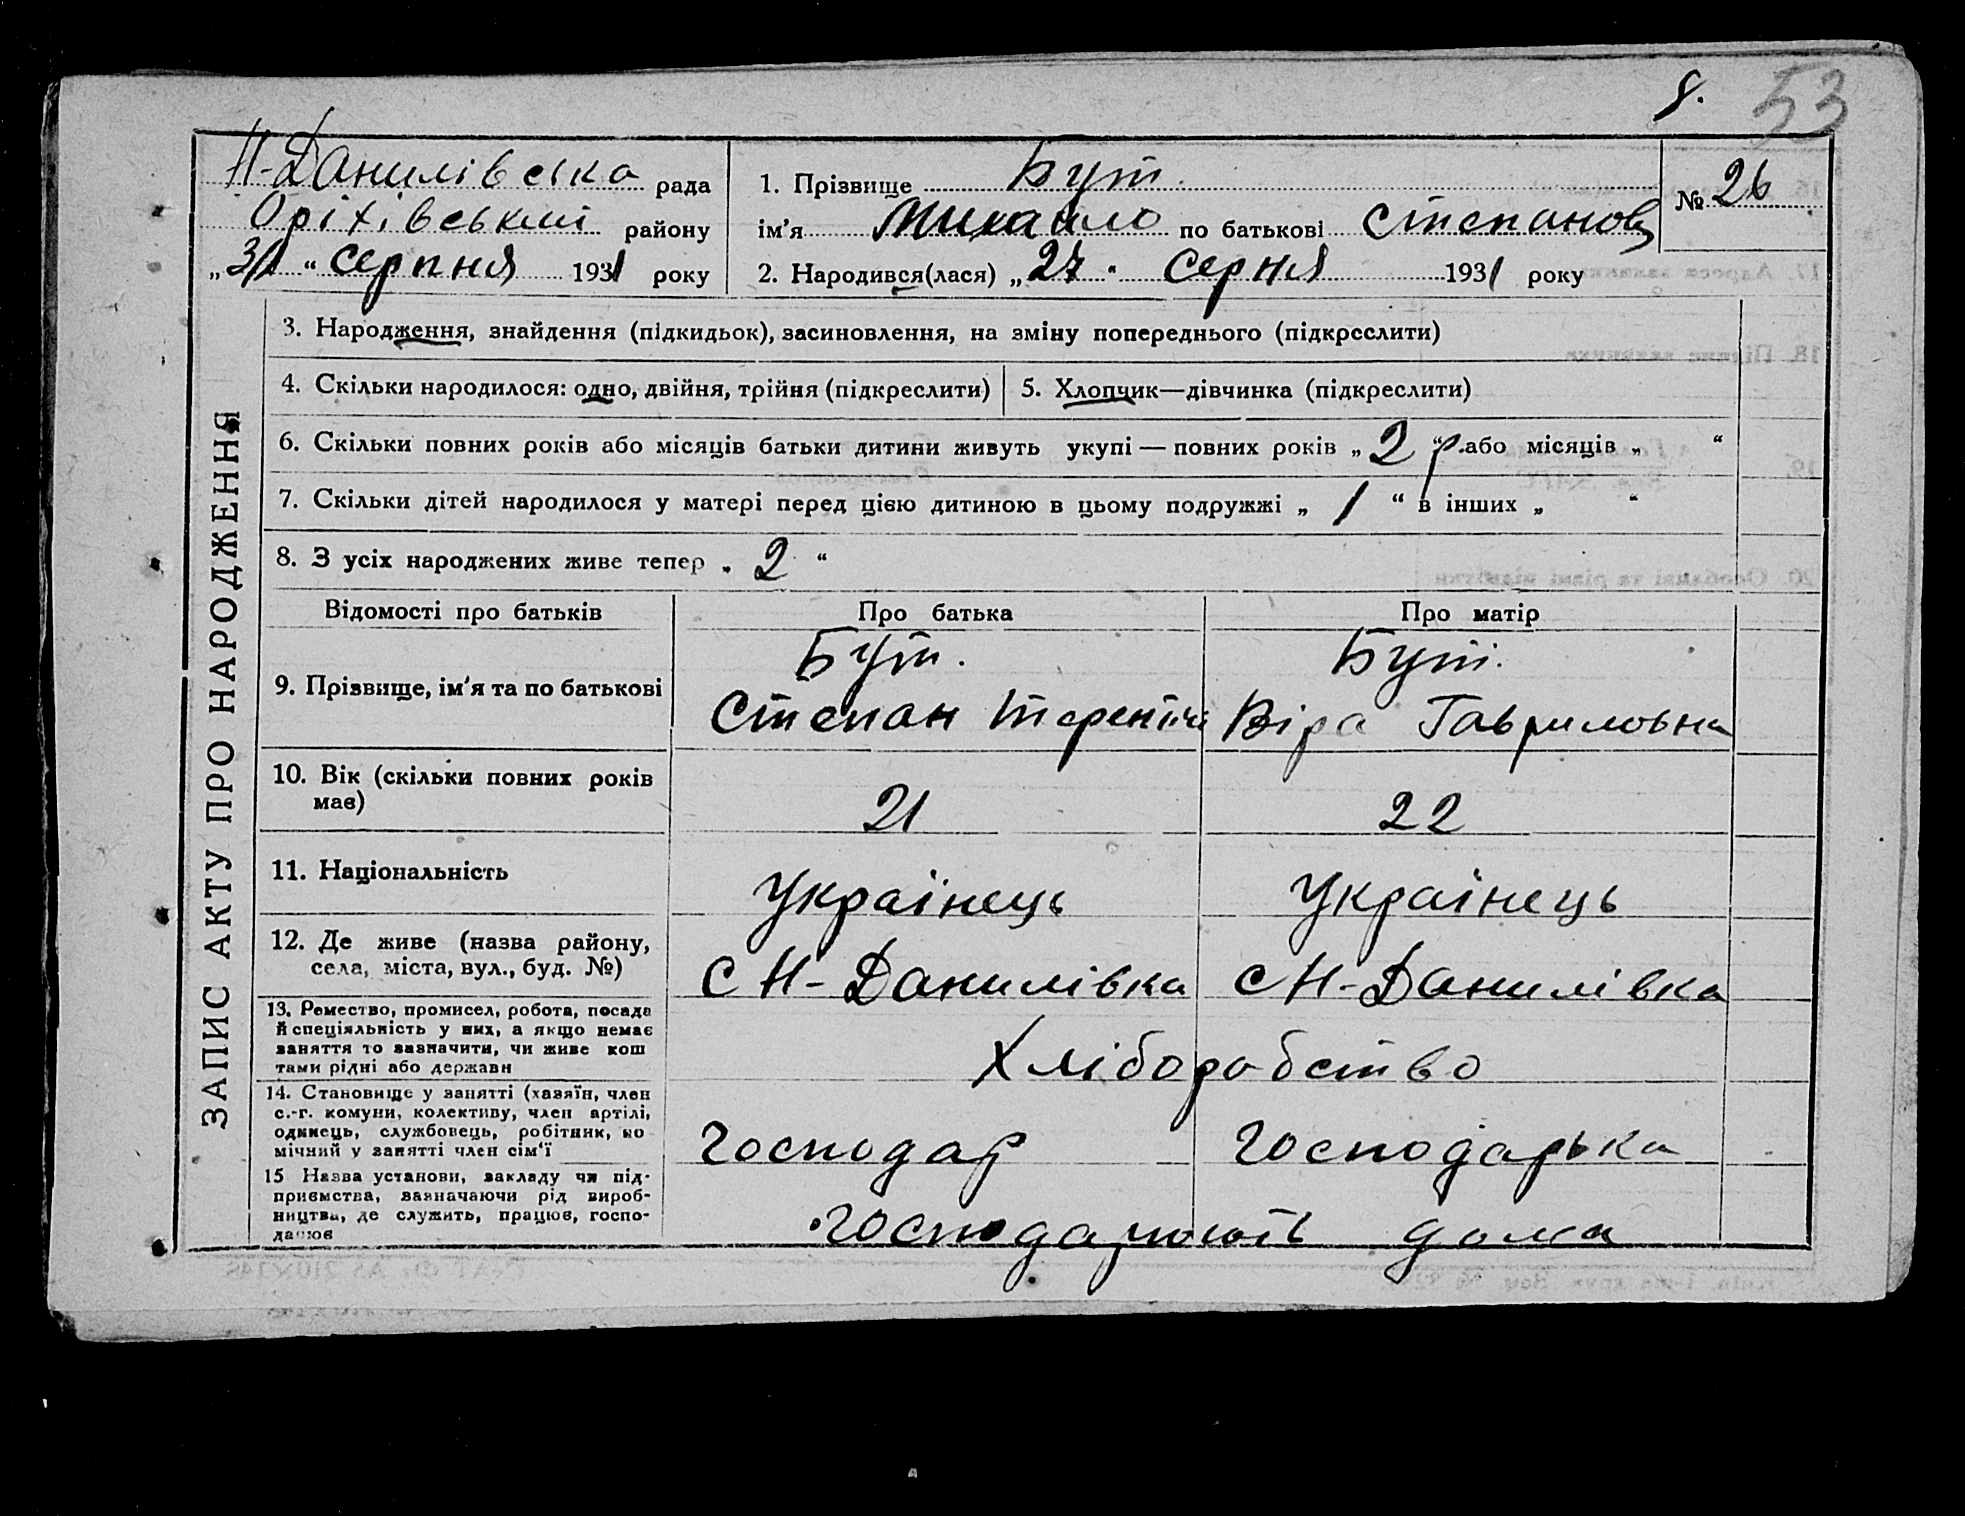 8. 53
Н-Данилівська рада
Оріхівський району
„31“ серпня 1931 року
1. Прізвище Бут.
ім’я Михайло по батькові Степанов
2. Народився(лася) „27“ Серня 1931 року
№ 26
ЗАПИС АКТУ ПРО НАРОДЖЕННЯ
3. Народження, знайдення (підкидьок), засиновлення, на зміну попереднього (підкреслити)
4. Скільки народилося: одно, двійня, трійня (підкреслити)
5. Хлопчик—дівчинка (підкреслити)
6. Скільки повних років або місяців батьки дитини живуть укупі — повних років „2 р.“ або місяців „ “
7. Скільки дітей народилося у матері перед цією дитиною в цьому подружжі „1“ в інших „ “
8. З усіх народжених живе тепер „2“
Відомості про батьків Про батька Про матір
9. Прізвище, ім’я та по батькові
Бут. Бут.
Степан Терентій Віра Гавриловна
10. Вік (скільки повних років
має)
21 22
11. Національність
Українець Українець
12. Де живе (назва району,
села, міста, вул., буд. №)
с Н-Данилівка с Н-Данилівка
13. Ремество, промисел, робота, посада
й спеціяльність у них, а якщо немає
заняття то зазначити, чи живе кош
тами рідні або держави
Хліборобство
14. Становище у занятті (хазяїн, член
с.-г. комуни, колективу, член артілі,
одинець, службовець, робітник, по
мічний у занятті член сім‘ї
Господар Господарька
15 Назва установи, закладу чи під-
приємства, зазначаючи рід вироб-
ництва, де служить, працює, госпо-
дарює
господарюють дома